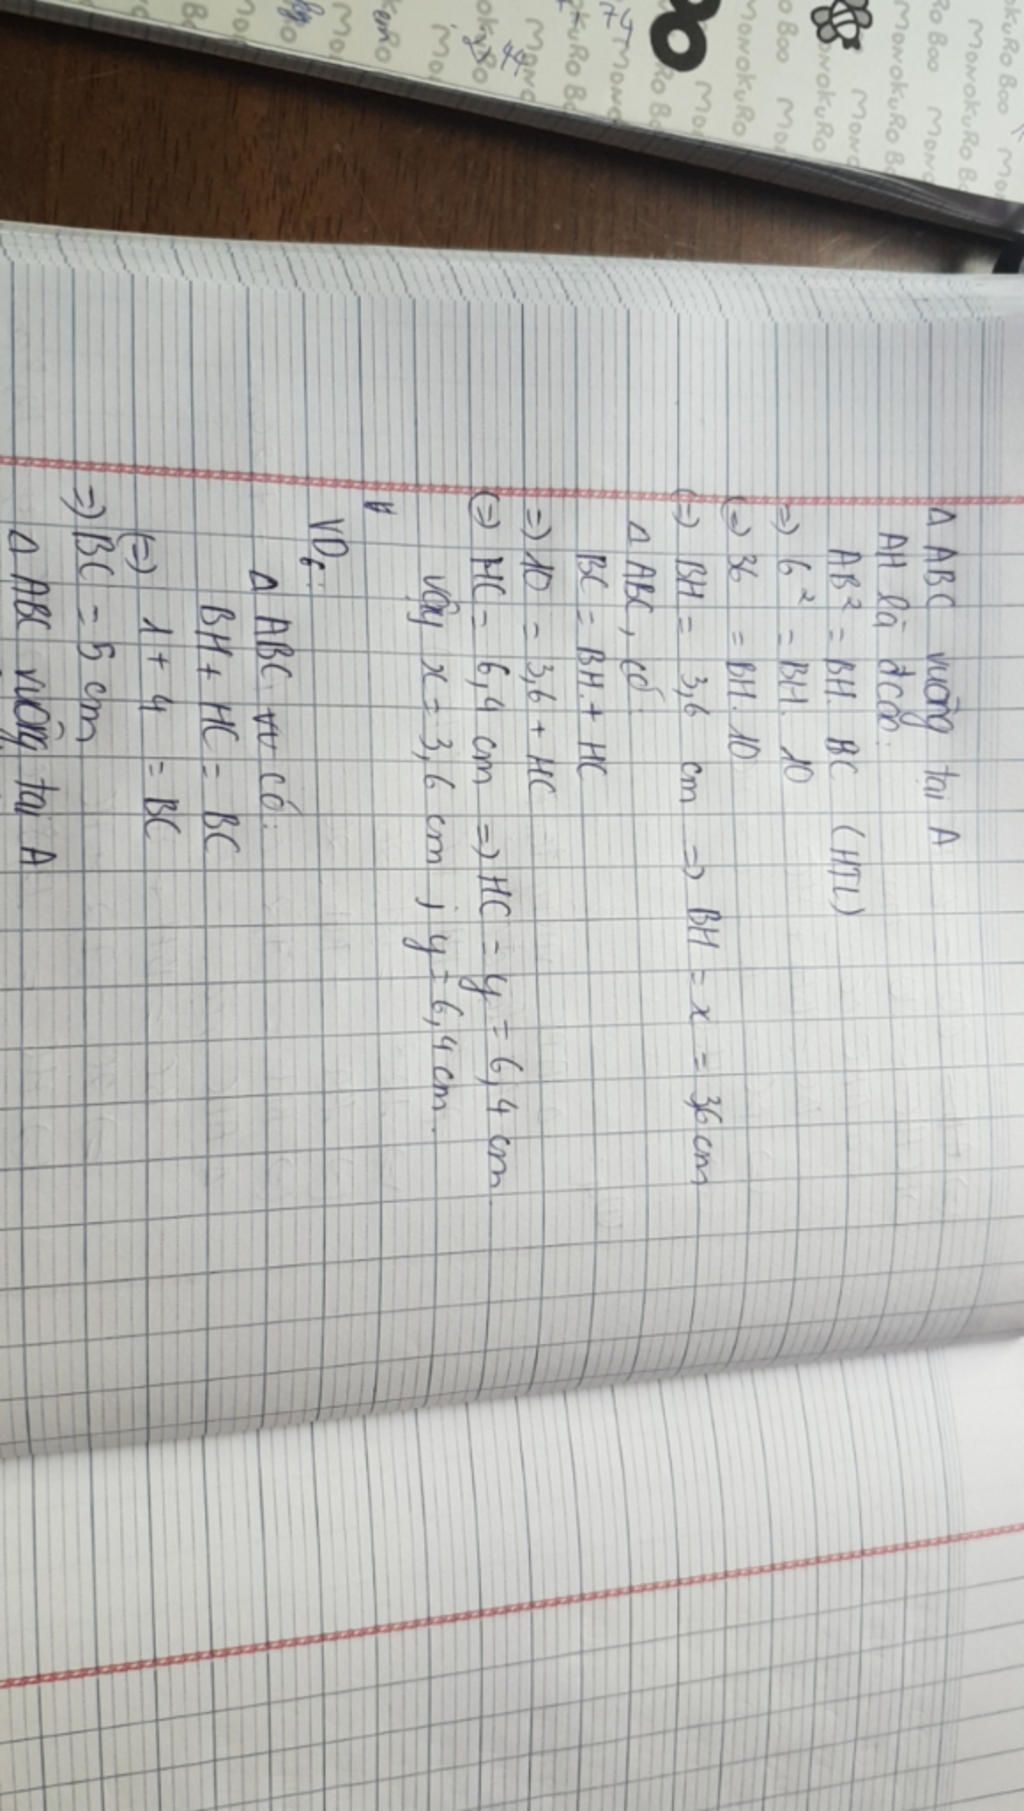 Δ ABC vuông tại A
AH là đ cao:
AB² = BH. BC (HTL)
=) 6² = BH. 10
(=) 36 = BH. 10
(=) BH = 3,6 cm =) BH = x = 3,6 cm
Δ ABC, có:
BC = BH + HC
=) 10 = 3,6 + HC
(=) HC = 6,4 cm =) HC = y = 6,4 cm.
Vậy x = 3,6 cm ; y = 6,4 cm.
VD6:
Δ ABC có:
BH + HC = BC
(=) 1 + 4 = BC
=) BC = 5 cm
Δ ABC vuông tại A
MONOKURO BOO